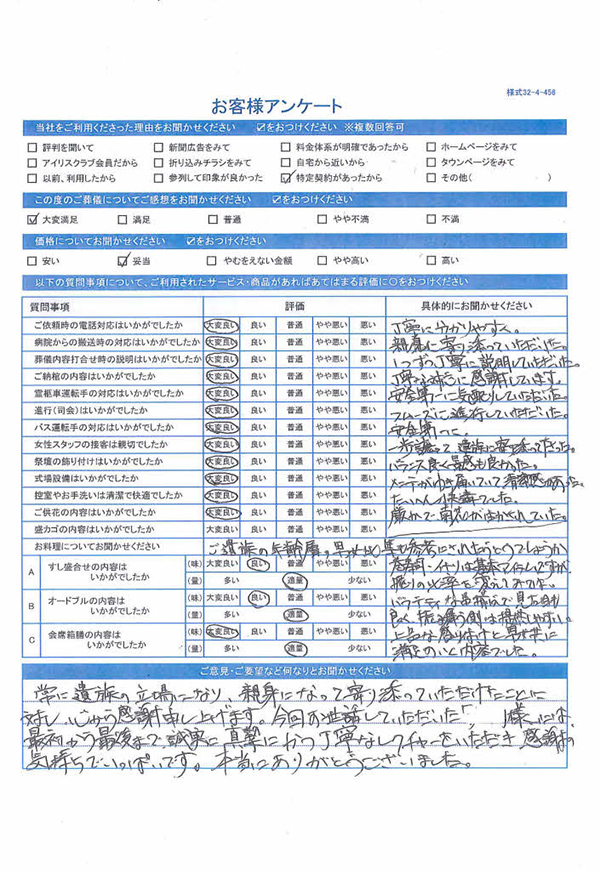 様式32-4-456
お客様アンケート
当社をご利用くださった理由をお聞かせください ☑をおつけください ※複数回答可
□ 評判を聞いて □ 新聞広告をみて □ 料金体系が明確であったから □ ホームページをみて
□ アイリスクラブ会員だから □ 折り込みチラシをみて □ 自宅から近いから □ タウンページをみて
□ 以前、利用したから □ 参列して印象が良かった ☑ 特定契約があったから □ その他( )
この度のご葬儀についてご感想をお聞かせください ☑をおつけください
☑ 大変満足 □ 満足 □ 普通 □ やや不満 □ 不満
価格についてお聞かせください ☑をおつけください
□ 安い ☑ 妥当 □ やむをえない金額 □ やや高い □ 高い
以下の質問事項について、ご利用されたサービス・商品があればあてはまる評価に○をおつけください
質問事項 評価 具体的にお聞かせください
ご依頼時の電話対応はいかがでしたか 大変良い 良い 普通 やや悪い 悪い 丁寧にわかりやすく。
病院からの搬送時の対応はいかがでしたか 大変良い 良い 普通 やや悪い 悪い 親身に寄り添っていただいた。
葬儀内容打合せ時の説明はいかがでしたか 大変良い 良い 普通 やや悪い 悪い 1つずつ丁寧に説明していただいた。
ご納棺の内容はいかがでしたか 大変良い 良い 普通 やや悪い 悪い 感謝しています。
霊柩車運転手の対応はいかがでしたか 大変良い 良い 普通 やや悪い 悪い 安全第一に気配りしていただいた。
進行(司会)はいかがでしたか 大変良い 良い 普通 やや悪い 悪い スムーズに進行していただいた。
バス運転手の対応はいかがでしたか 大変良い 良い 普通 やや悪い 悪い 安全第一に。
女性スタッフの接客は親切でしたか 大変良い 良い 普通 やや悪い 悪い 一歩 遺族に
祭壇の飾り付けはいかがでしたか 大変良い 良い 普通 やや悪い 悪い バランス良く 良かった。
式場設備はいかがでしたか 大変良い 良い 普通 やや悪い 悪い 清潔感があった。
控室やお手洗いは清潔で快適でしたか 大変良い 良い 普通 やや悪い 悪い たいへん快適でした。
ご供花の内容はいかがでしたか 大変良い 良い 普通 やや悪い 悪い 厳かで
盛カゴの内容はいかがでしたか 大変良い 良い 普通 やや悪い 悪い
お料理についてお聞かせください ご遺族の年齢層、男女比等も参考にされたらどうでしょうか
A すし盛合せの内容はいかがでしたか (味) 大変良い 良い 普通 やや悪い 悪い
(量) 多い 適量 少ない
B オードブルの内容はいかがでしたか (味) 大変良い 良い 普通 やや悪い 悪い
(量) 多い 適量 少ない
C 会席箱膳の内容はいかがでしたか (味) 大変良い 良い 普通 やや悪い 悪い 上品な盛り付けと
(量) 多い 適量 少ない 満足のいく内容でした。
ご意見・ご要望など何なりとお聞かせください
常に遺族の立場になり、親身になって寄り添っていただけたことに
対し、心から感謝申し上げます。今回お世話していただいた 様には、
最初から最後まで誠実に真摯にかつ丁寧なレクチャーをいただき感謝の
気持ちでいっぱいです。本当にありがとうございました。